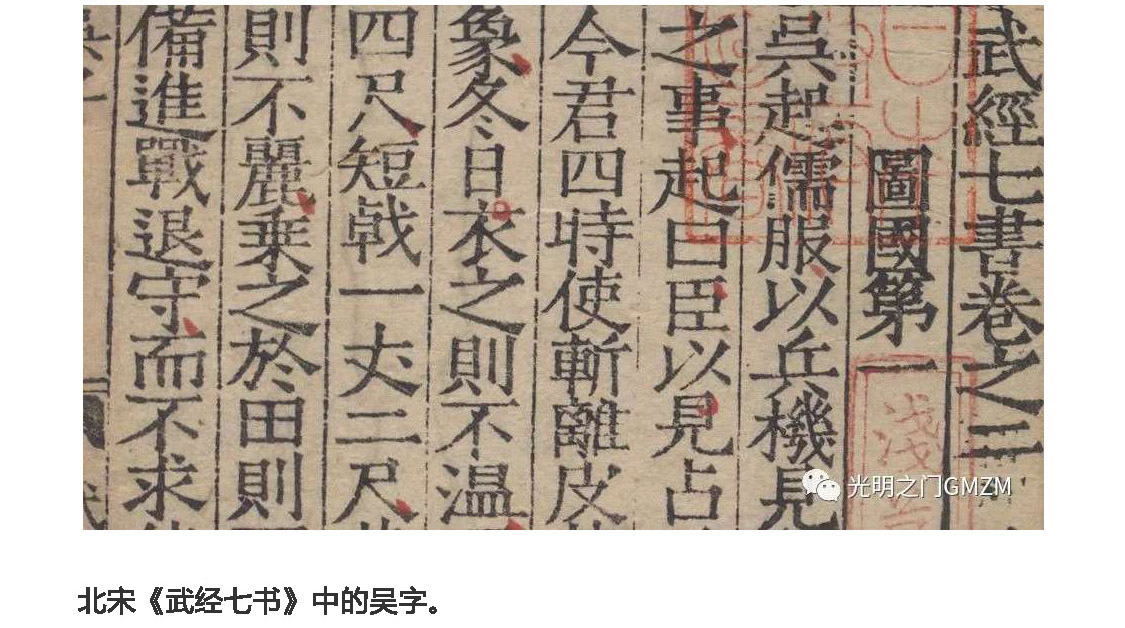 武經七書卷之三
圖國第一
吳起儒服以兵機見
之事起曰臣以見占
今君四時使斬離皮
象冬日衣之則不温
四尺短戟一丈二尺
則不麗乗之於田則
備進戰退守而不求
浅
光明之门GMZM
北宋《武经七书》中的吴字。